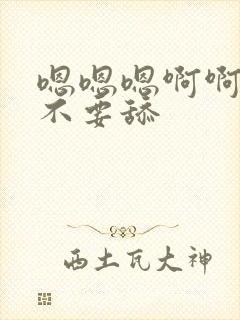 嗯嗯嗯啊啊
不要舔
西土瓦大神